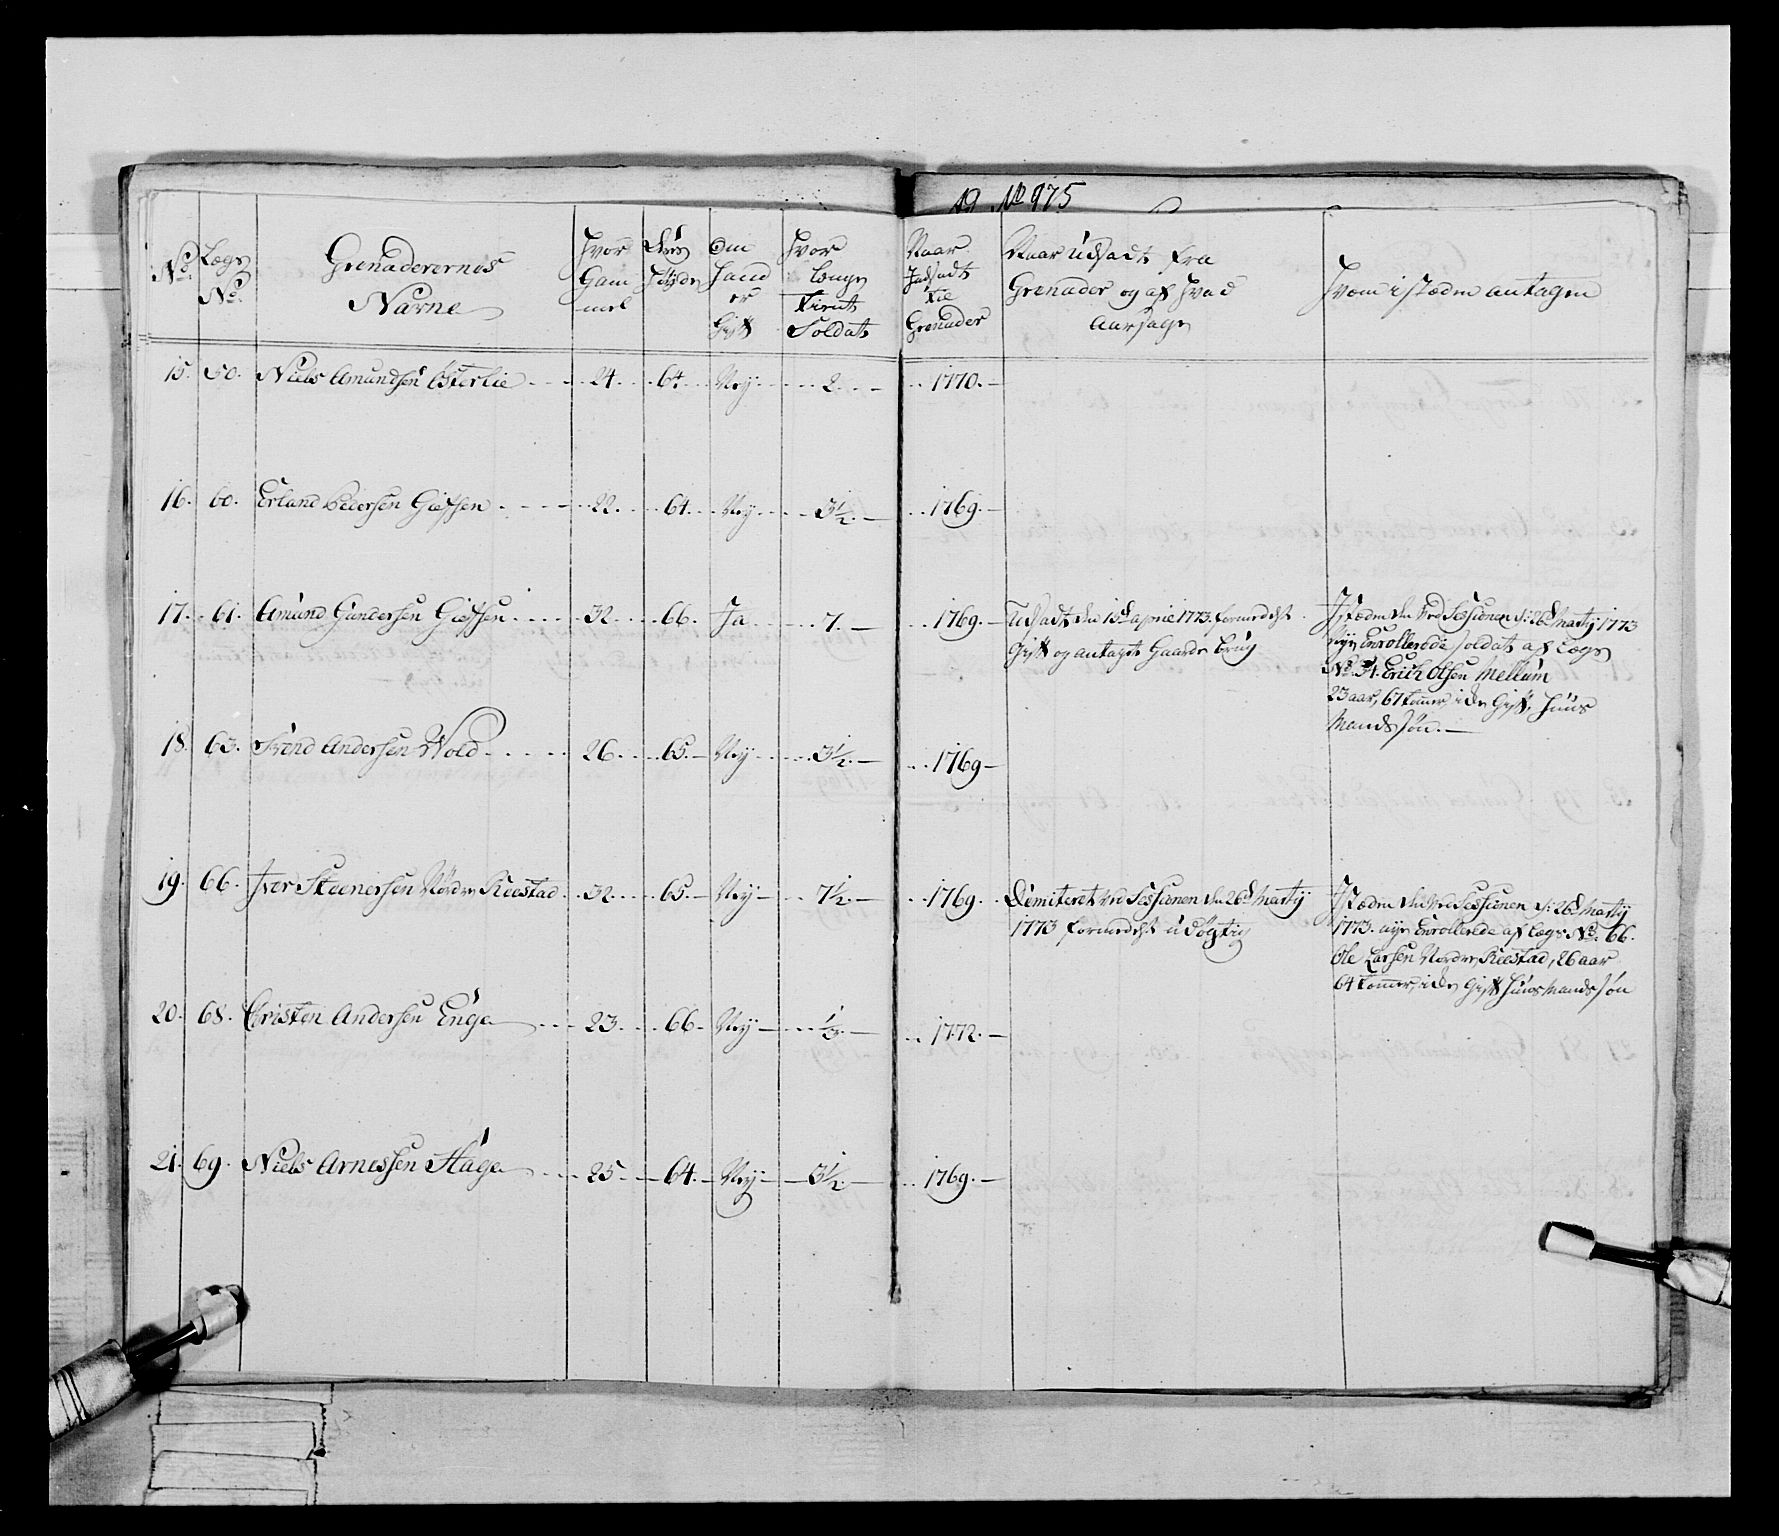 19 No 975
No.
Lægs No.
Grenaderernes Navne
Hvor Gam mel
Deres Høyde
Om Hand er Gift
Hvor lenge Tient Soldat
Naar Indsadt til Grenader
Naar Udsadt fra Grenader og af Hvad Aarsage
Hvem i stæden antagen
15. 50. Niels Amundsen Østerlie 24. 64. Ney 2. 1770.
16. 60. Erland Pedersen Giessen 22. 64. Ney 3½. 1769.
17. 61. Amund Gundersen Giessen 32. 66. Ja 7. 1769. Udsadt den 15d april 1773. formedelst
Gift og antaget Gaards brug
I stæden den ved Sessionen d: 26d Martij 1773
nye Enrollerede soldat af Lægs
No. 34. Erich Olsen Mellum
23 aar, 67 tomer, ide Gift, Huus
Mands søn.
18. 63. Svend Andersen Wold 26. 65. Ney 3½. 1769
19. 66. Iver Steenersen Nordre Reestad 32. 65. Ney 7½. 1769. Dimiteret ved Sessionen den 26d Martij
1773 formedelst udøgtig
I stæden den ved Sessionen d: 26d Martij
1773. nye Enrollerede af Lægs No. 66.
Ole Larsen Nordre Reestad, 26 aar
64 tomer, ide Gift Huusmands søn
20. 68. Christen Andersen Enge 23. 66. Ney ⅓. 1772.
21. 69. Niels Arnessen Hage 25 64. Ney 3½. 1769.